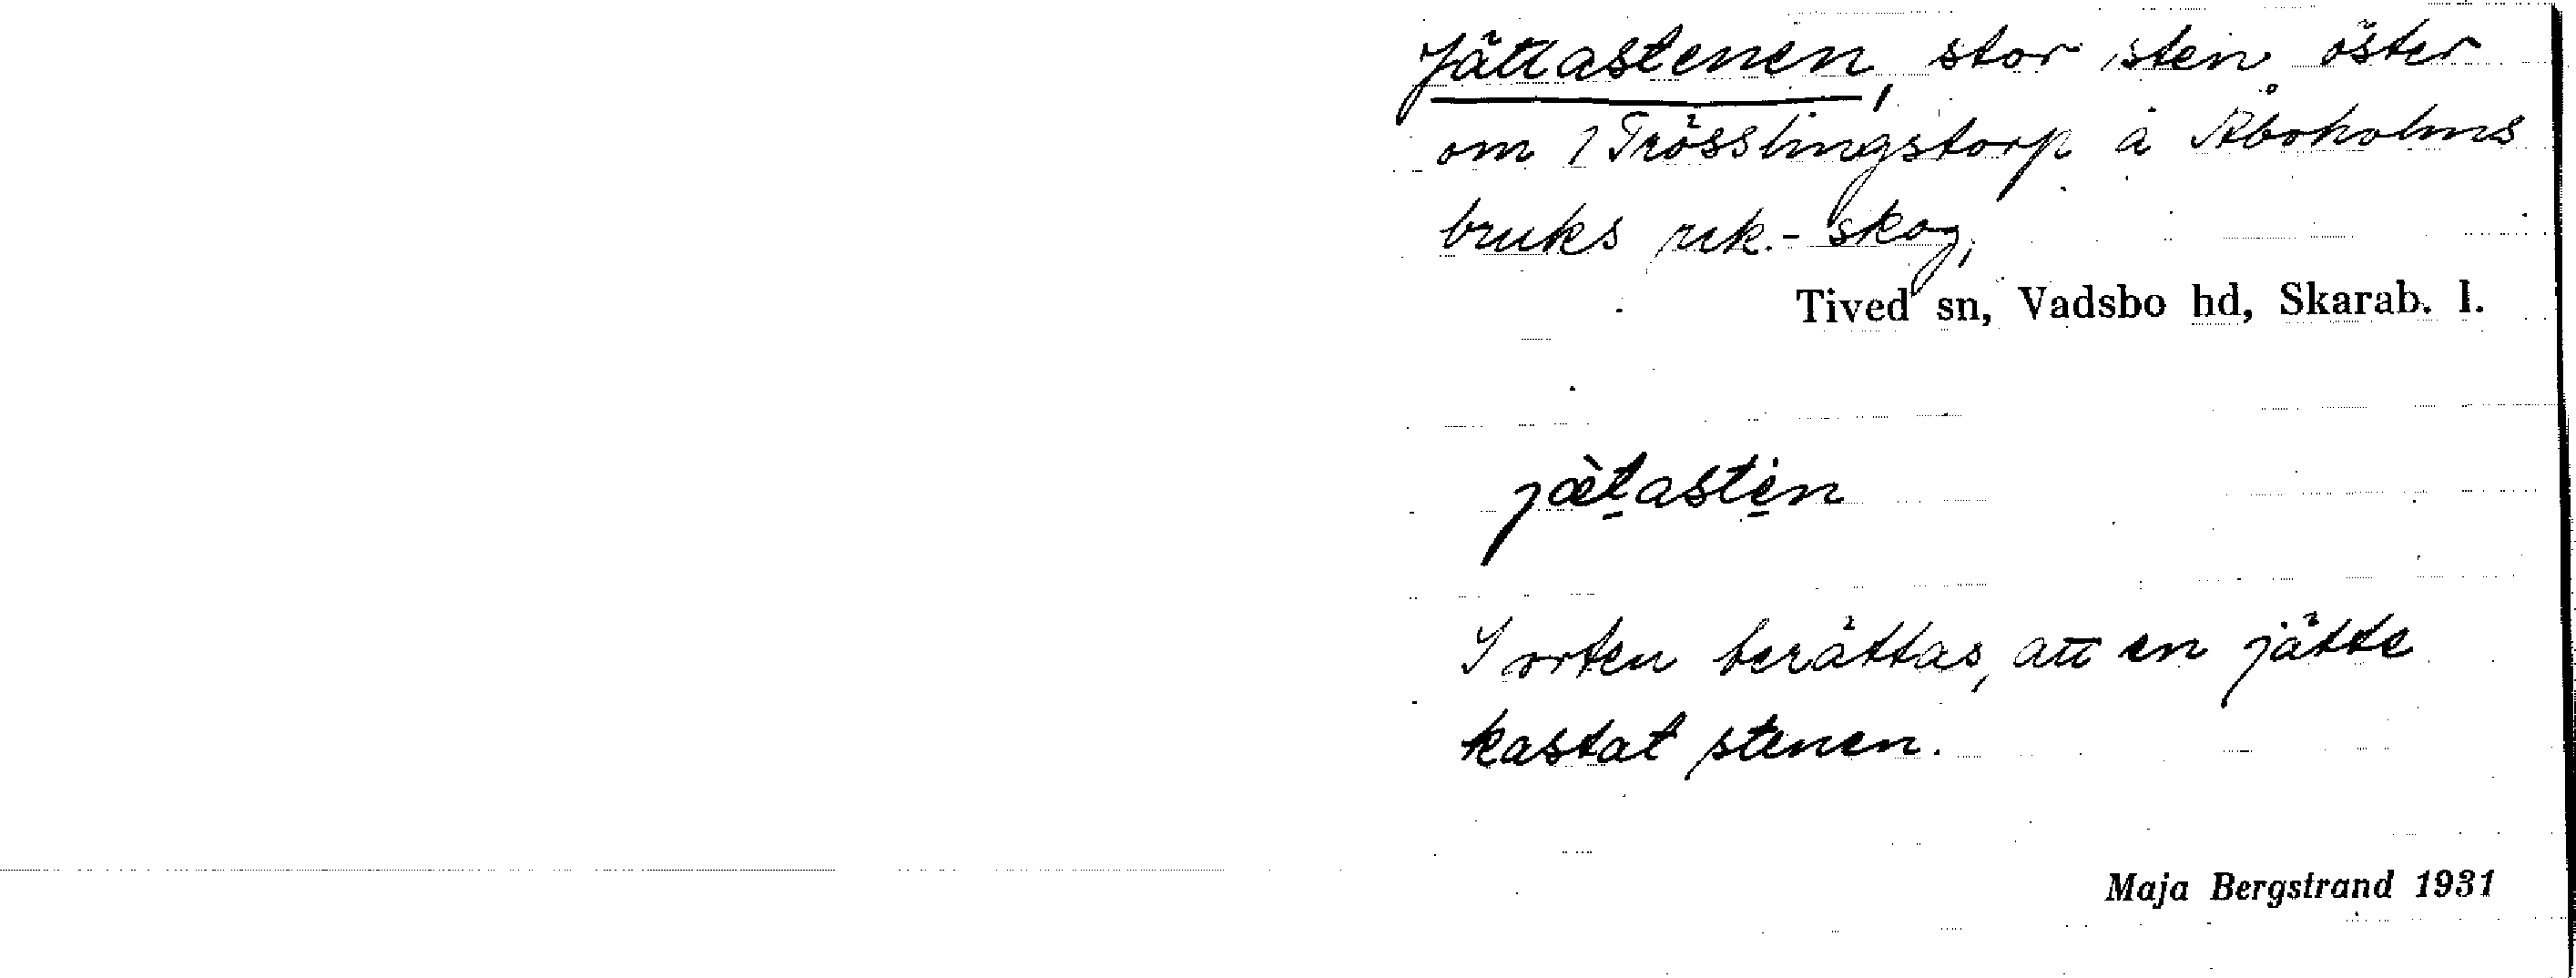 Jättastenen, stor sten öster
om 1 Trösslingstorp å Åboholms
bruks rek.-skog,
Tived sn, Vadsbo hd, Skarab. l.
jæ̀t̠astė̠n
I orten berättas, att en jätte
kastat stenen.
Maja Bergstrand 1931